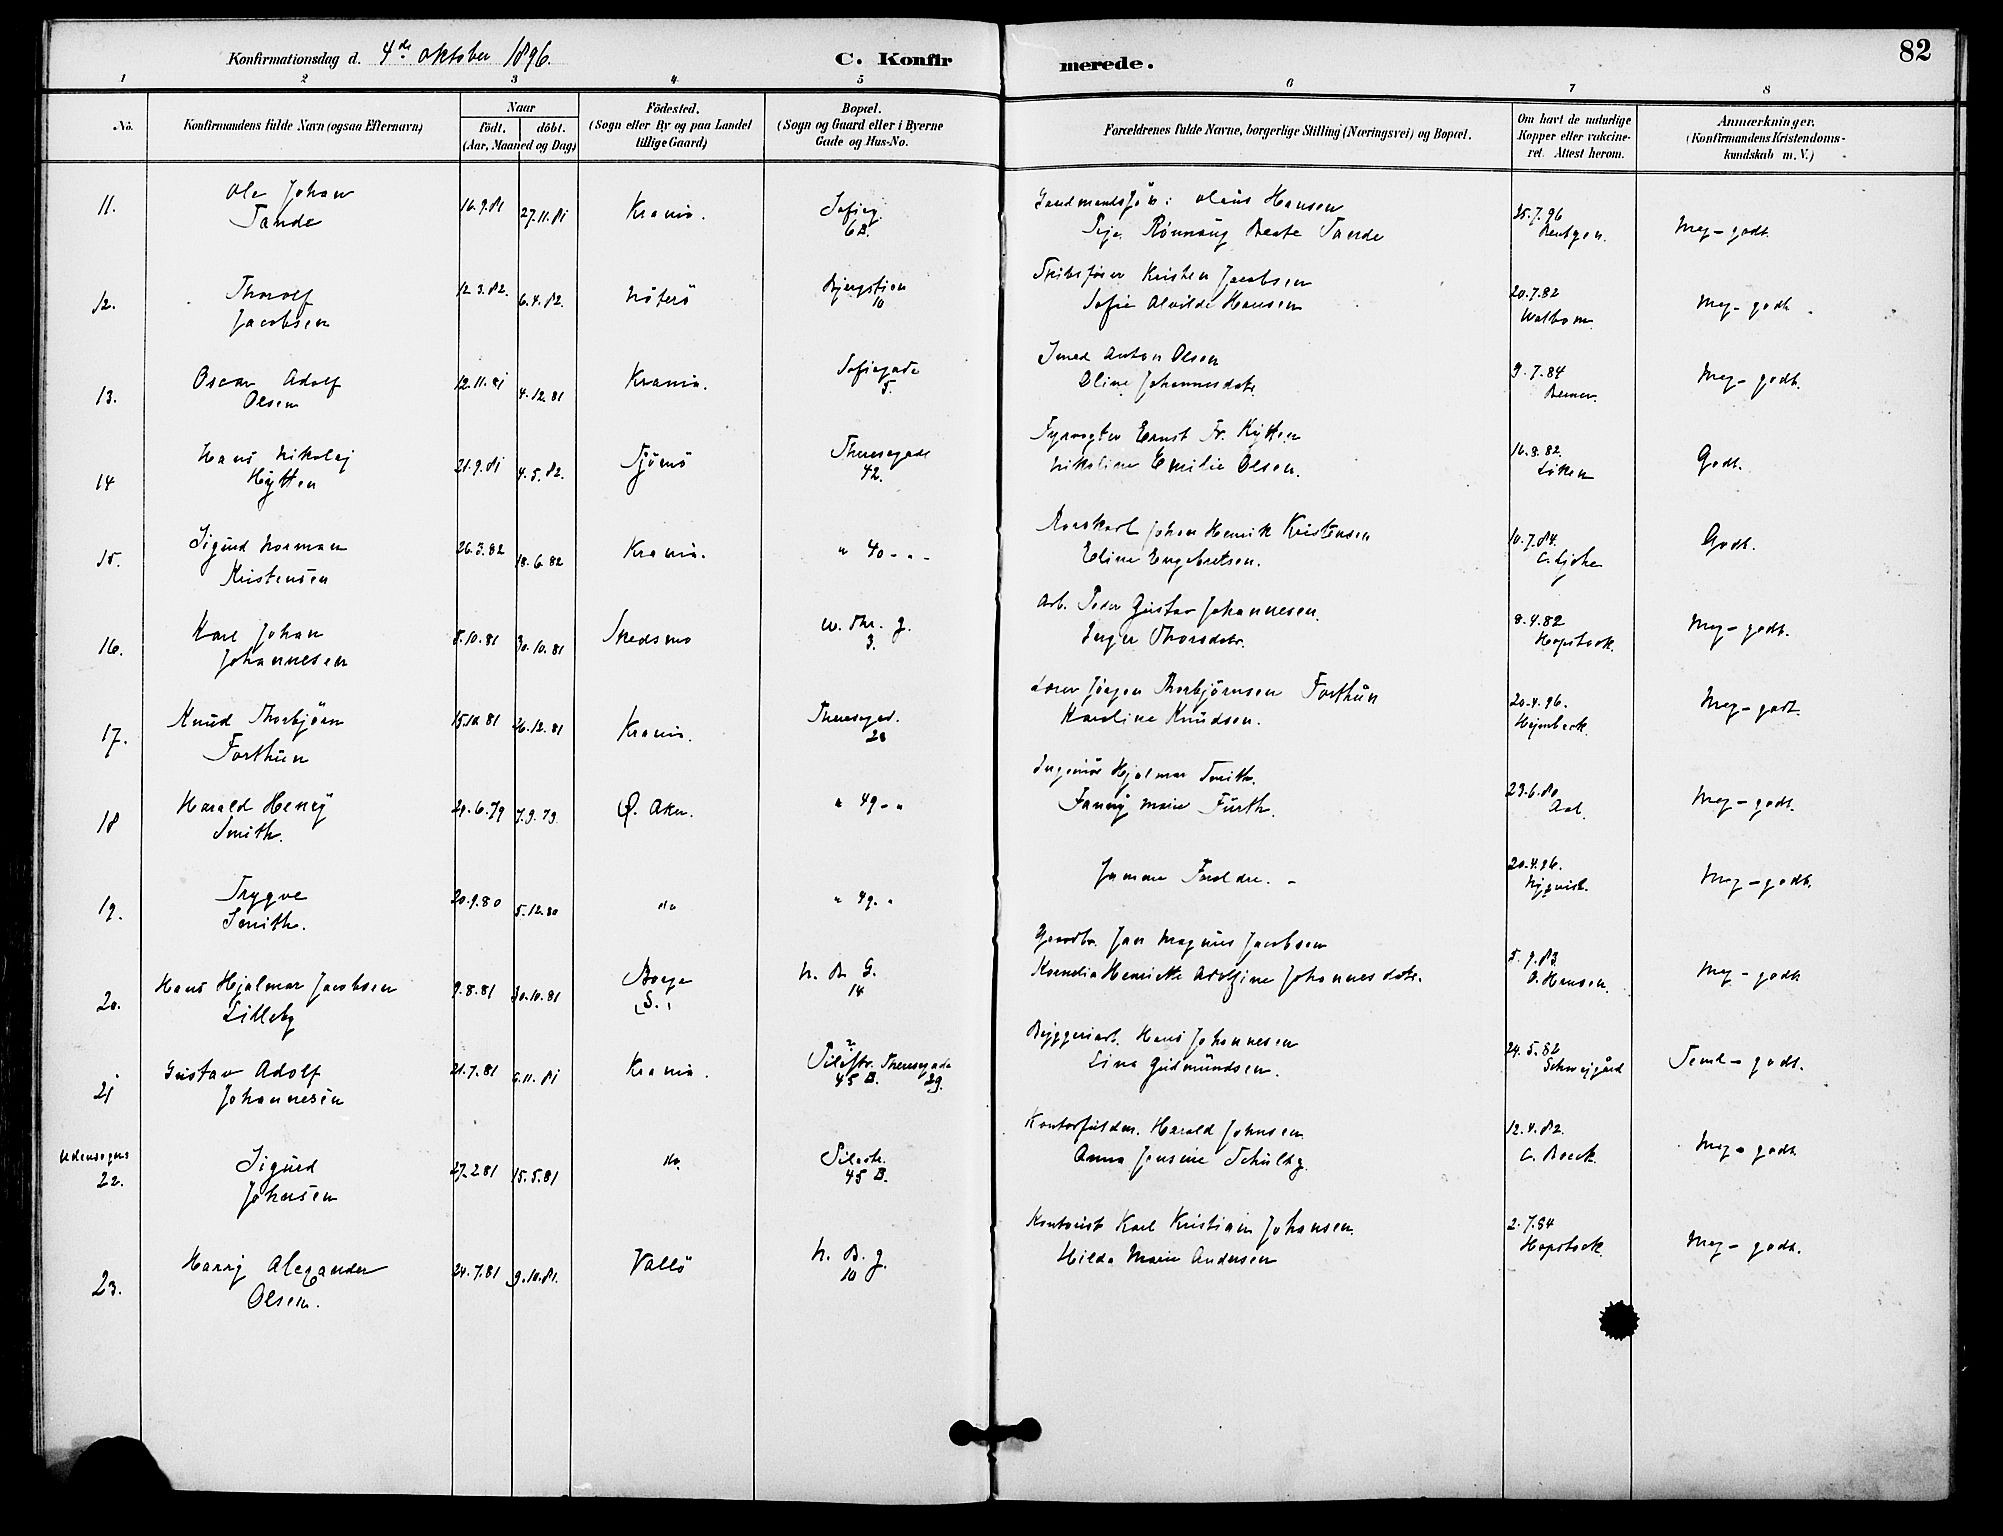 Konfirmationsdag d. 4de oktober 1896.
C. Konfirmerede.
82
1 2 3 4 5 6 7 8
No.
Konfirmandens fulde Navn (ogsaa Efternavn)
Naar
födt. döbt.
(Aar, Maaned og Dag)
Födested.
(Sogn eller By og paa Landet
tillige Gaard)
Bopæl.
(Sogn og Gaard eller i Byerne
Gade og Hus-No.
Forældrenes fulde Navne, borgerlige Stilling (Næringsvei) og Bopæl.
Om havt de naturlige
Kopper eller vakcine-
ret. Attest herom.
Anmærkninger.
(Konfirmandens Kristendoms-
kundskab m. V.)
11.
Ole Johan
Tande
16.9.81 27.11.81
Krania.
Sofieg.
6B.
Olaus Hansen
Pige Rönnaug Beate Tande
25.7.96
Bentzen.
Meg-godt.
12.
Thorolf
Jacobsen
12.3.82. 6.4.82.
Nöterö
Bjergstien
10
Skibsförer Kristen Jacobsen
Sofie Alvilde Hansen
20.7.82
Walbom
Meg-godt.
13.
Oscar Adolf
Olsen
12.11.81 4.12.81
Krania.
Sofiegade
5.
Smed Anton Olsen
Oline Johannesdatr.
9.7.84
Berner.
Meg-godt.
14
Hans Nikolaj
Hytten
21.9.81 4.5.82.
Tjömö
Theresegade
42.
Fyrvogter Ernst Fr. Hytten
Nikoline Emilie Olsen.
16.8.82.
Löken
Godt.
15.
Sigurd Norman
Kristensen
26.3.82 18.6.82
Krania.
" 40 - -
Johan Henrik Kristensen
Eline Engebretsen.
10.7.84.
Godt.
16.
Karl Johan
Johannesen
8.10.81 30.10.81
Skedsmo
W. Thr. g.
3.
Arb. Peder Gustav Johannesen.
Inger Thorsdatr.
8.4.82
Hopstock.
Meg-godt.
17.
Knud Thorbjörn
Forthun
15.10.81 26.12.81
Krania.
Theresegad.
28
Lærer Jörgen Thorbjörnsen Forthun
Karoline Knudsen.
20.4.96.
Hejmbeck.
Meg-godt.
18
Harald Henry
Smith.
29.6.79 7.9.79.
Ö. Aker.
" 49 - "
Ingeniör Hjalmar Smith.
Fanny Marie Fürth.
23.6.80
Aal.
Meg-godt.
19.
Trygve
Smith.
20.9.80 5.12.80
do
" 49. "
Samme Foreldre. -
20.4.96.
Nyqvist.
Meg-godt.
20.
Hans Hjalmar Jacobsen
Lilleby
9.8.81 30.10.81
Borge
(S.)
N. B. G.
14
Gaardbr. Jan Magnus Jacobsen
Kornelia Henriette Adolfine Johannesdatr.
5.9.83.
O. Hansen.
Meg-godt
21
Gustav Adolf
Johannesen
21.7.81 6.11.81
Krania.
Pilestr. Theresegade
45 B. 29.
Bryggeriarb. Hans Johannesen
Lina Gudmundsen.
24.5.82
Schweigård
Teml-godt.
Udensogns
22.
Sigurd
Johnsen
27.2.81 15.5.81
do.
Pilestr.
45 B.
Kontorfuldm. Harald Johnsen
Anna Jensine Schultz.
12.4.82.
C. Boeck.
Meg-godt.
23.
Harry Alexander
Olsen.
24.7.81 9.10.81.
Vallö
N. B. g.
10
Kontorist Karl Kristian Johansen.
Hilda Marie Andersen
2.7.84
Hopstock.
Meg-godt.